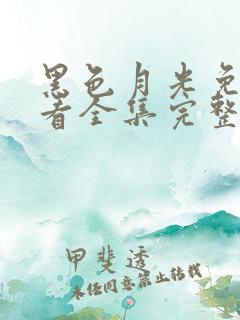 黑色月光免
看全集完整
甲斐透
未经同意禁止转载